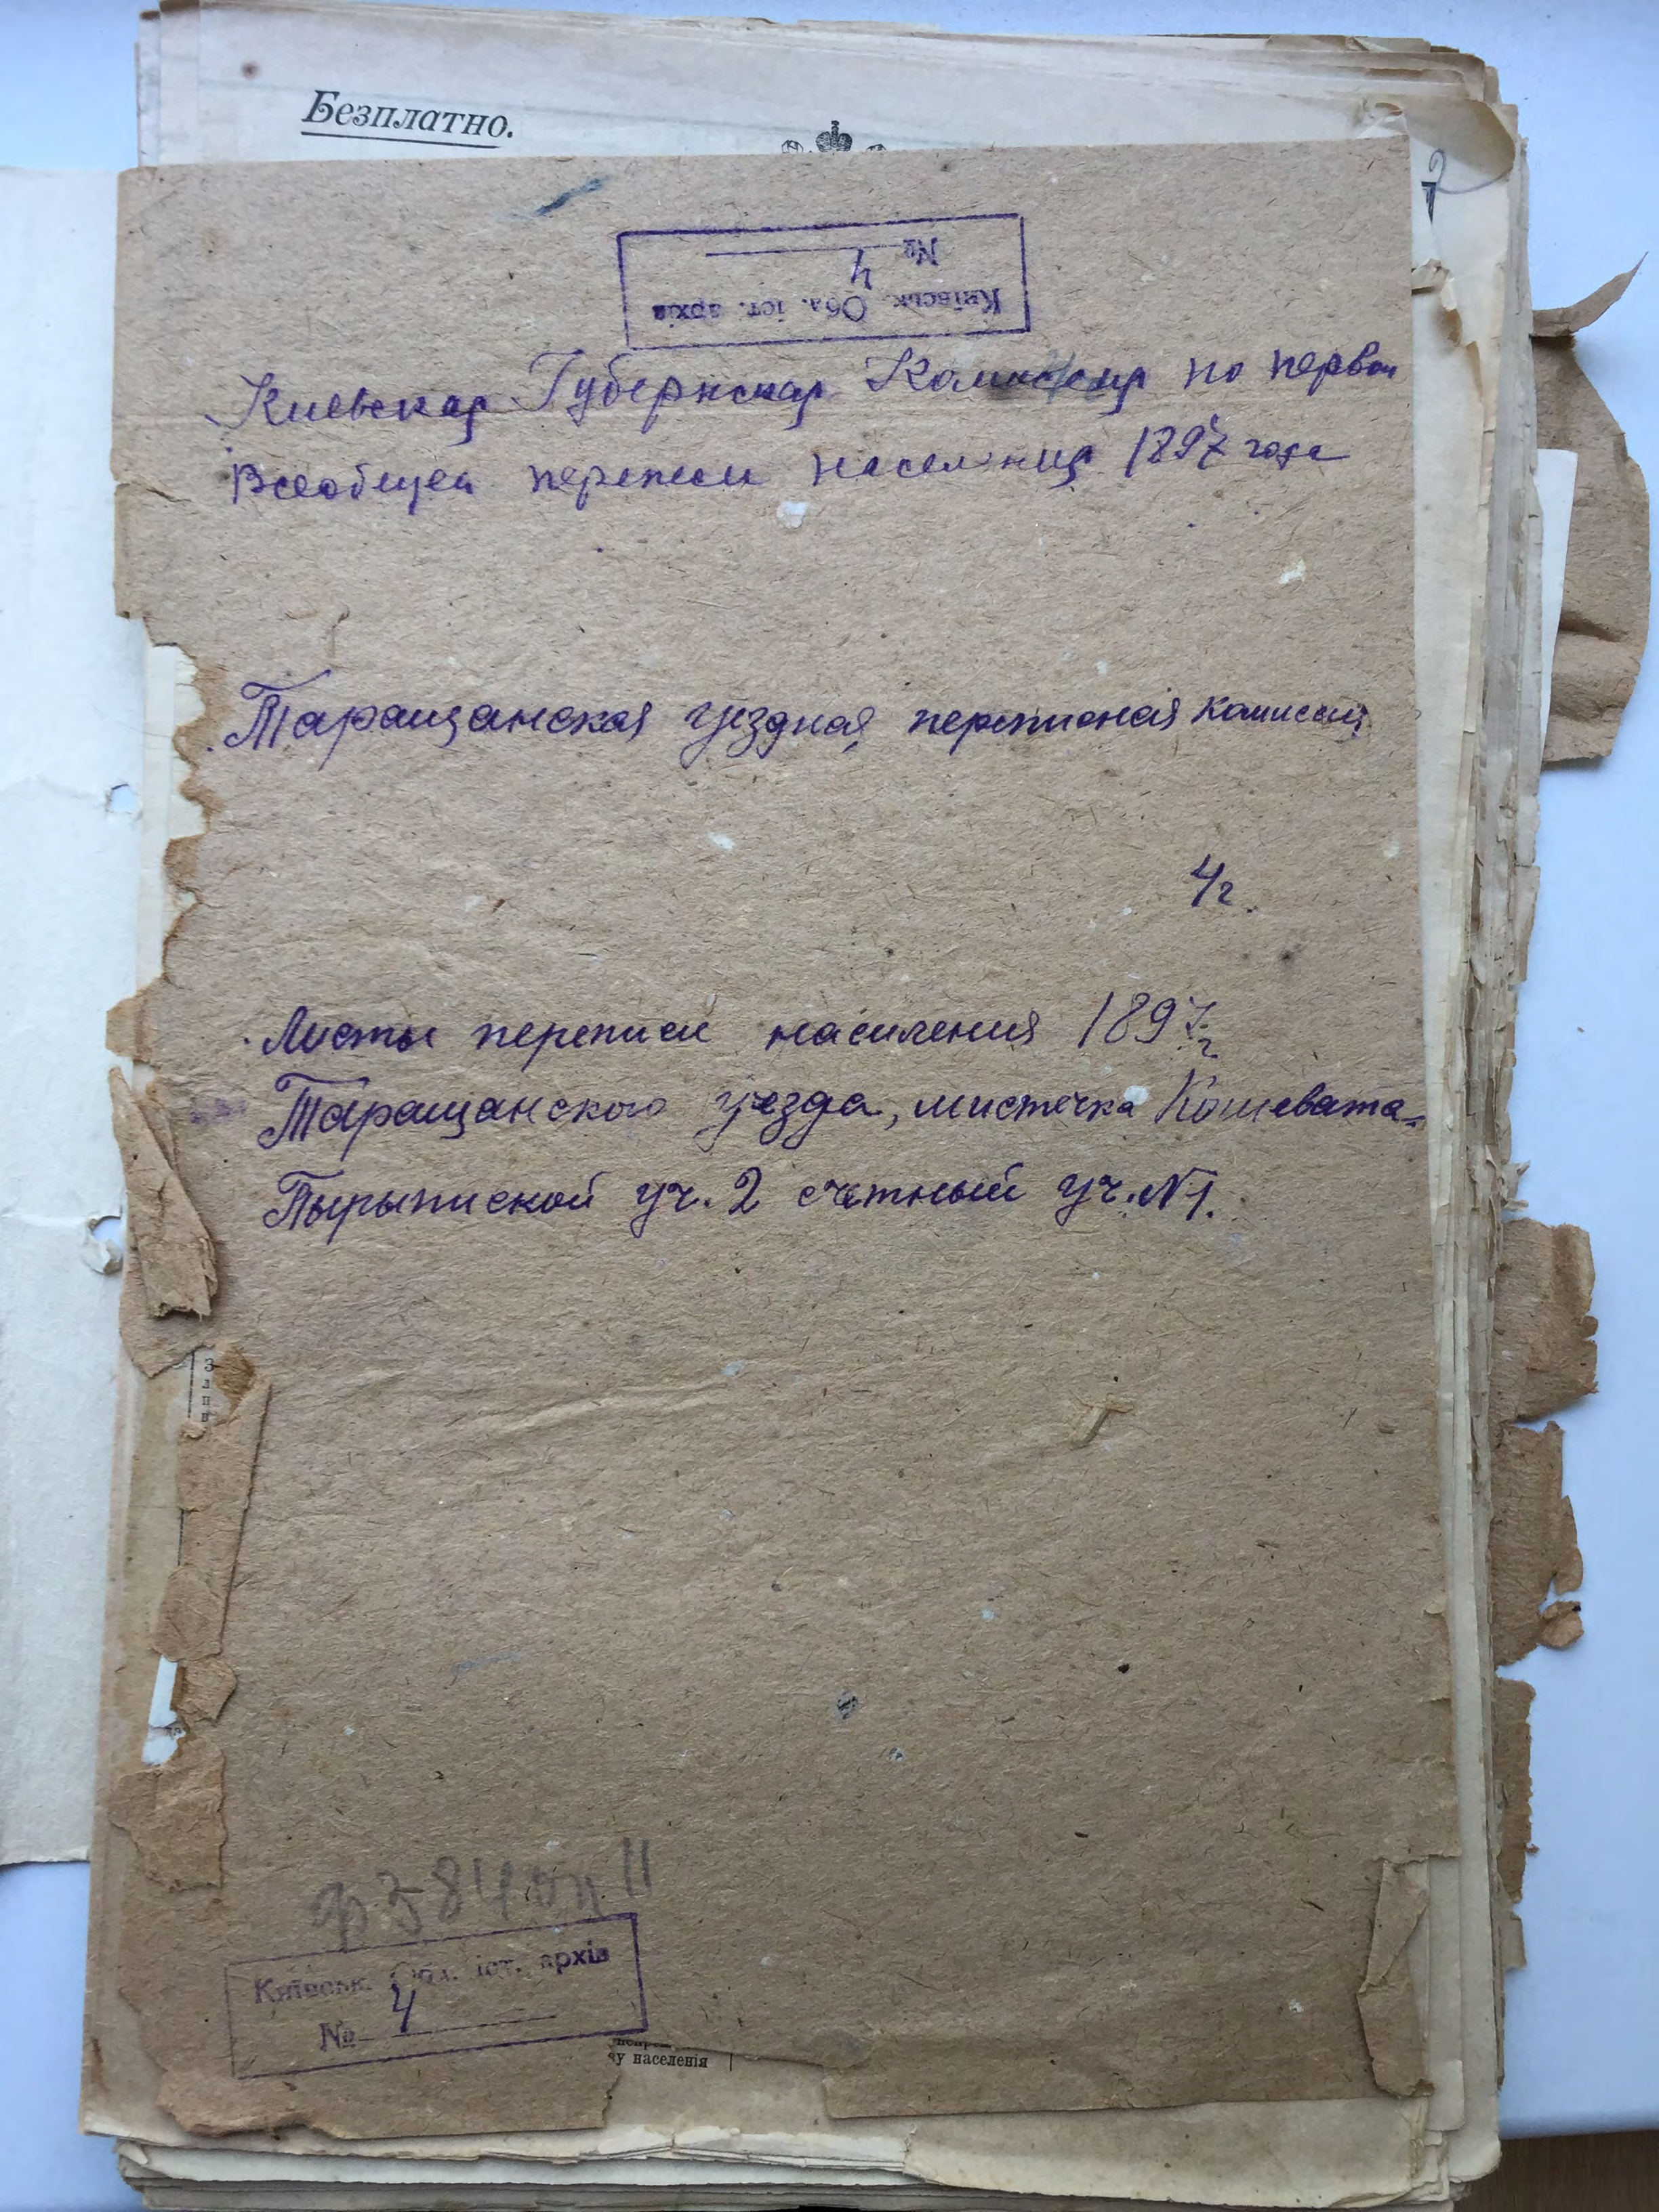 Безплатно.
Київськ. Обл. іст. архів
№ 4
Киевская Губернская Комиссия по первой
Всеобщей переписи населения 1897 года
Таращанская уездная переписная комиссия
4г.
Листы переписи населения 1897г
Таращанского уезда, мистечка Кошевата-
Пырыпиской уч. 2 счетный уч. N1.
ф 384 оп 11
Київськ. Обл. іст. архів
№ 4
у населенія